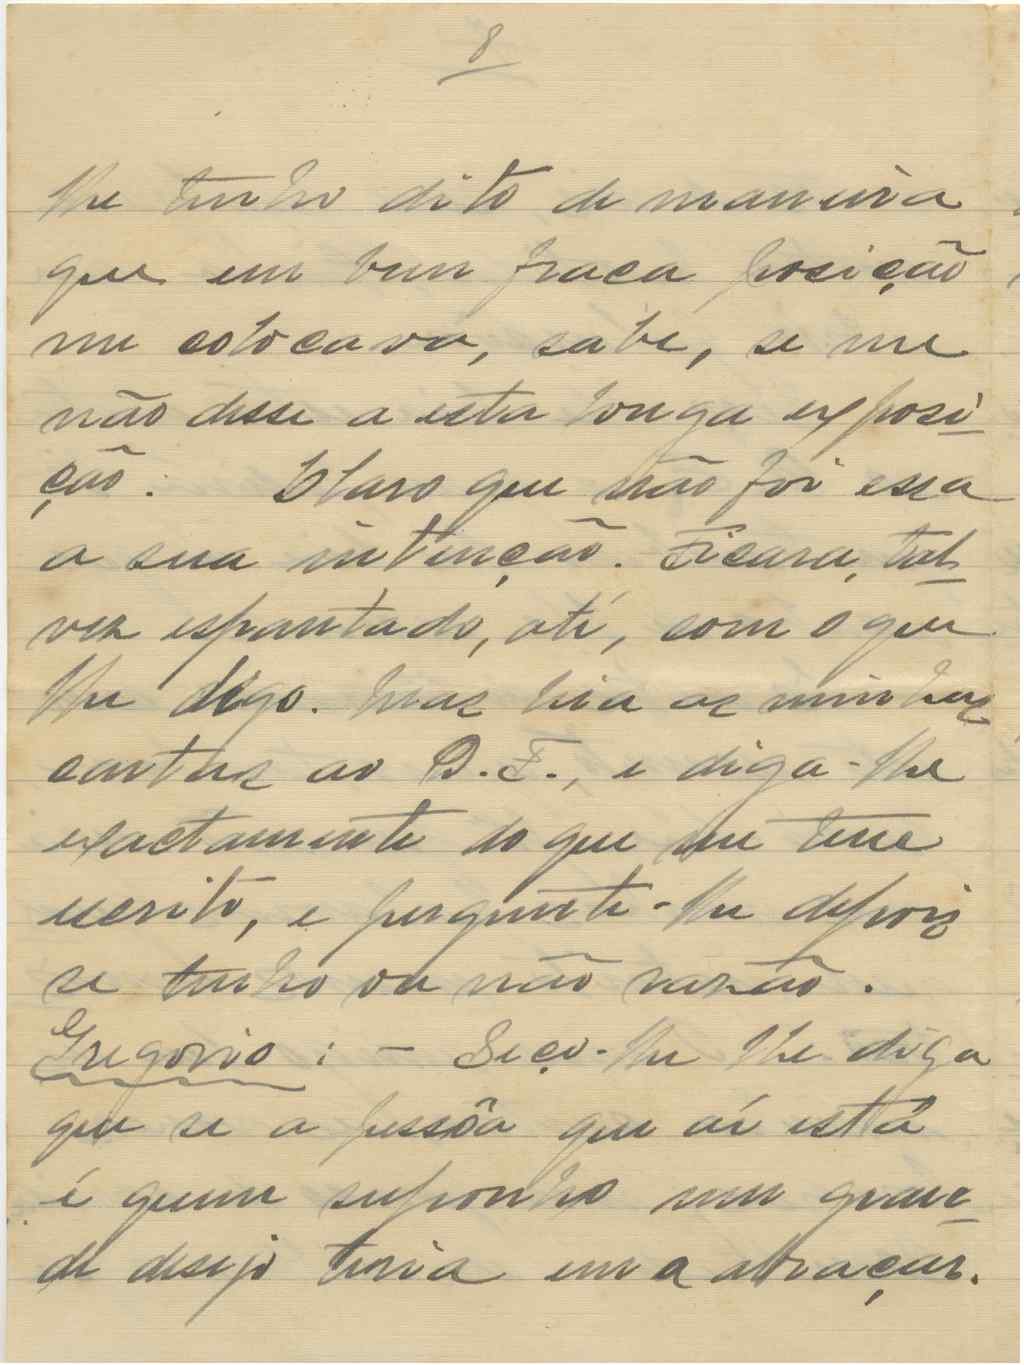 8
lhe tenho dito de maneira
que em bem fraca posição
me colocava, sabe, se me
não desse a esta longa exposi-
ção. Claro que não foi essa
a sua intenção. Ficará, tal-
vez espantado, até, com o que
lhe digo. Mas leia as minhas
cartas ao D. F., e diga-lhe
exactamente do que me tem
escrito, e pergunte-lhe depois
se tenho ou não razão.
Gregorio : - Peço-lhe lhe diga
que se a pessôa que aí está
é quem suponho num gran-
de desejo teria em a abraçar.